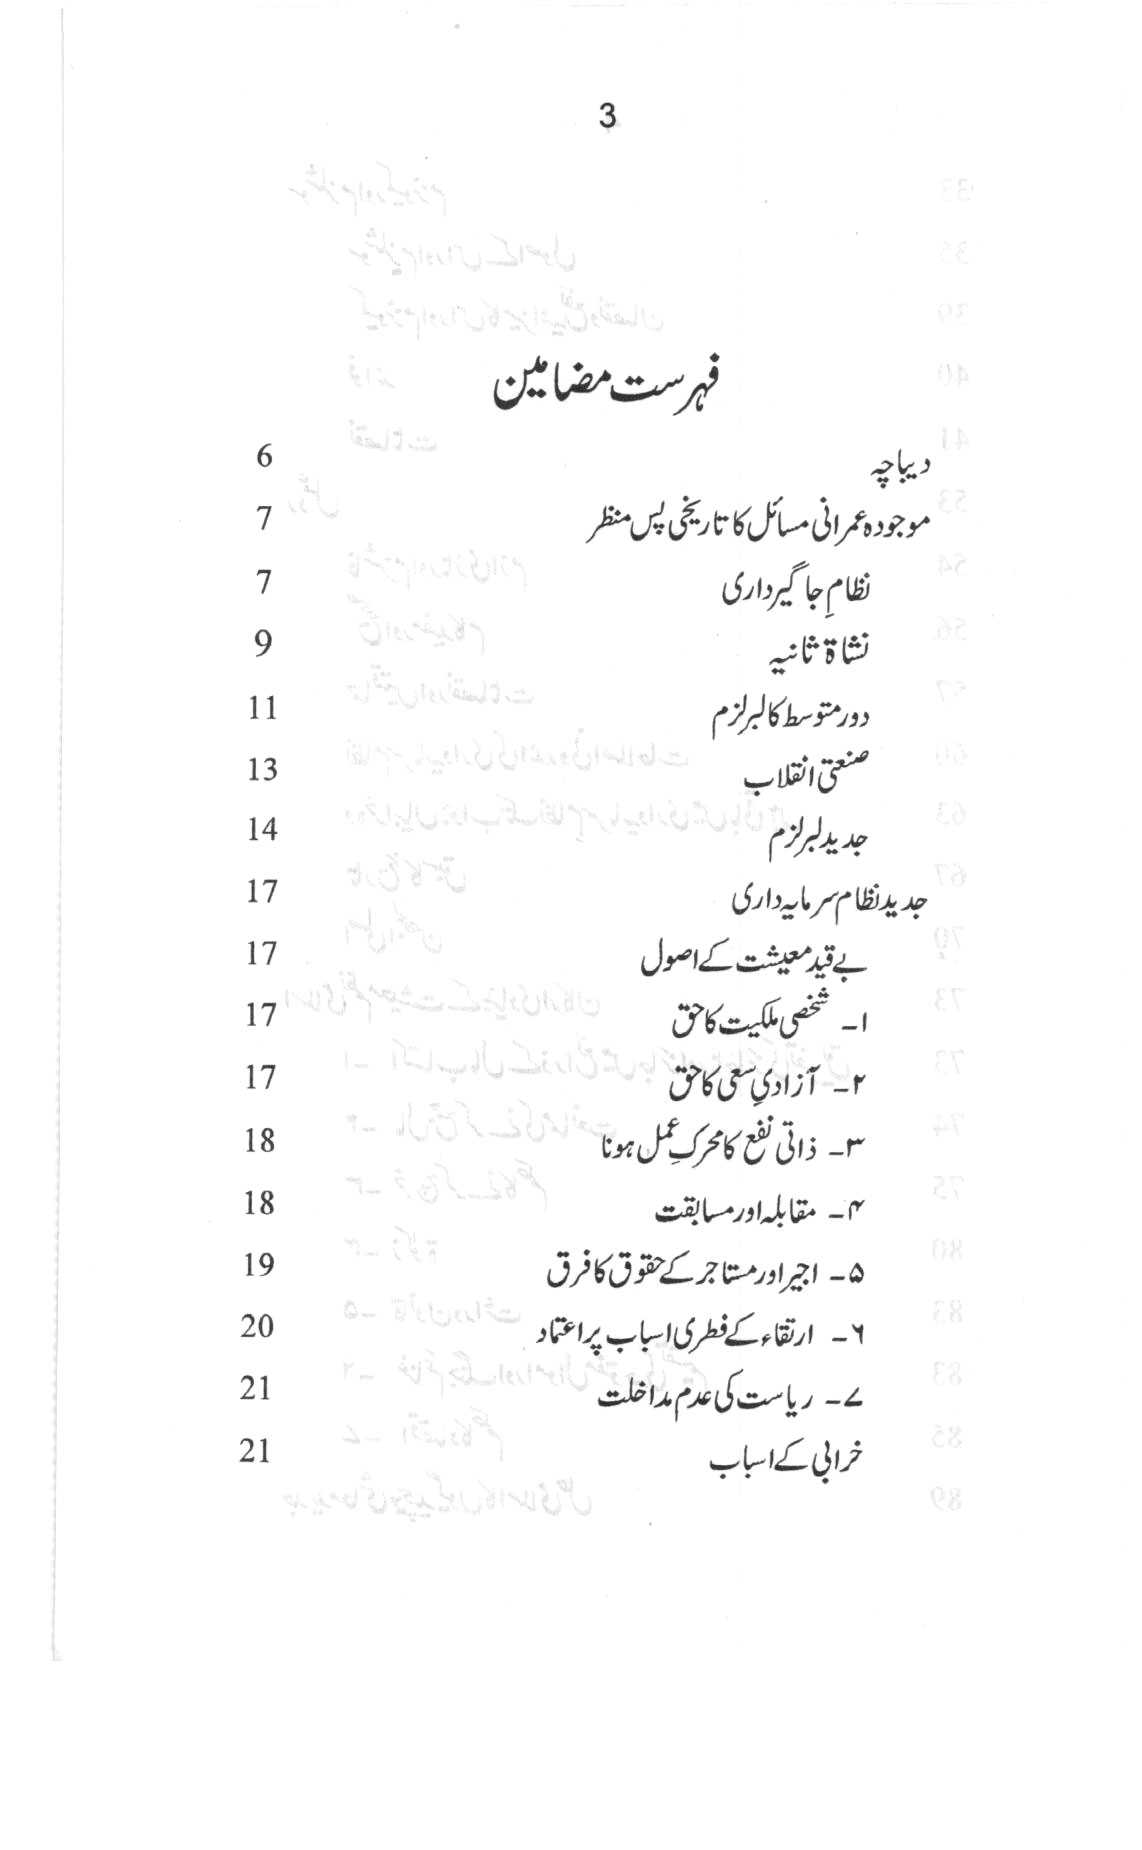 3
فہرست مضامین
دیباچہ 6
موجودہ عمرانی مسائل کا تاریخی پس منظر 7
نظامِ جاگیرداری 7
نشاۃ ثانیہ 9
دور متوسط کا لبرلزم 11
صنعتی انقلاب 13
جدید لبرلزم 14
جدید نظام سرمایہ داری 17
بے قید معیشت کے اصول 17
۱۔ شخصی ملکیت کا حق 17
۲۔ آزادیِ سعی کا حق 17
۳۔ ذاتی نفع کا محرکِ عمل ہونا 18
۴۔ مقابلہ اور مسابقت 18
۵۔ اجیر اور مستاجر کے حقوق کا فرق 19
۶۔ ارتقاء کے فطری اسباب پر اعتماد 20
۷۔ ریاست کی عدم مداخلت 21
خرابی کے اسباب 21